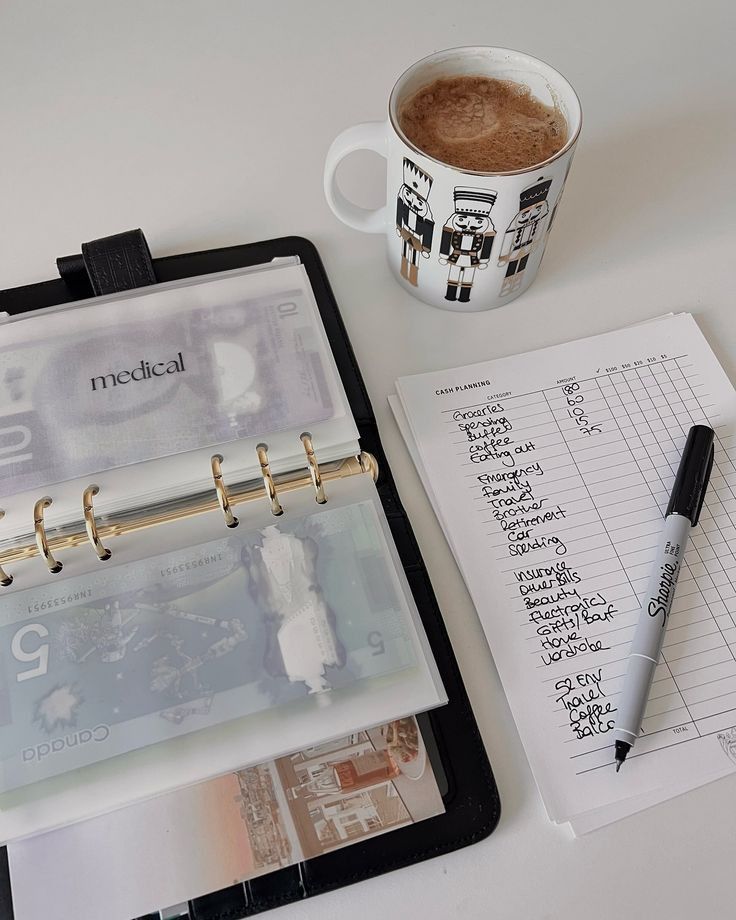 medical
10
10
INR9533951
INR9533951
5
5
Canada
CASH PLANNING
CATEGORY AMOUNT ✓ $100 $50 $20 $10 $5
Groceries 180
Spending 60
Buffer 10
Coffee 15
Eating out 75
Emergency
Family
Travel
Brother
Retirement
Car
Spending
Insurance
Other Bills
Beauty
Electronics
Gifts/
Home
Wardrobe
52 ENV
Travel
Coffee
TOTAL
Sharpie
ULTRA FINE POINT